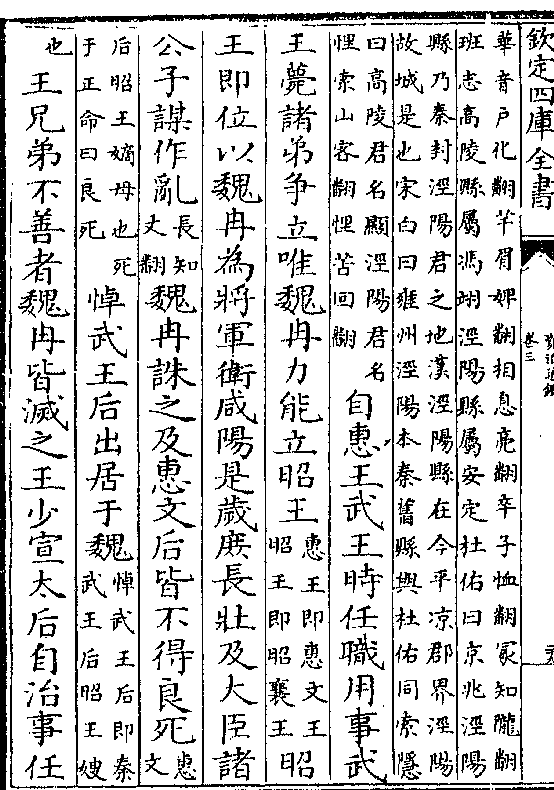 欽定四庫全書
卷三
華音户化翻芊眉婢翻相息亮翻卒子恤翻冡知隴翻
班志高陵縣屬馮翊涇陽縣屬安定杜佑曰京兆涇陽
縣乃秦封涇陽君之地漢涇陽縣在今平凉郡界涇陽
故城是也宋白曰雍州涇陽本秦舊縣與杜佑同索隱
曰高陵君名顯涇陽君名
悝索山客翻悝苦回翻
自惠王武王時任職用事武
王薨諸弟争立唯魏冉力能立昭王
惠王即惠文王昭
昭王即昭襄王
王即位以魏冉為將軍衛咸陽是歲庶長壯及大臣諸
公子謀作亂
長知
丈翻
魏冉誅之及惠文后皆不得良死
惠
文
后昭王嫡母也死
于正命曰良死
悼武王后出居于魏
悼武王后即秦
武王后昭王嫂
也
王兄弟不善者魏冉皆滅之王少宣太后自治事任